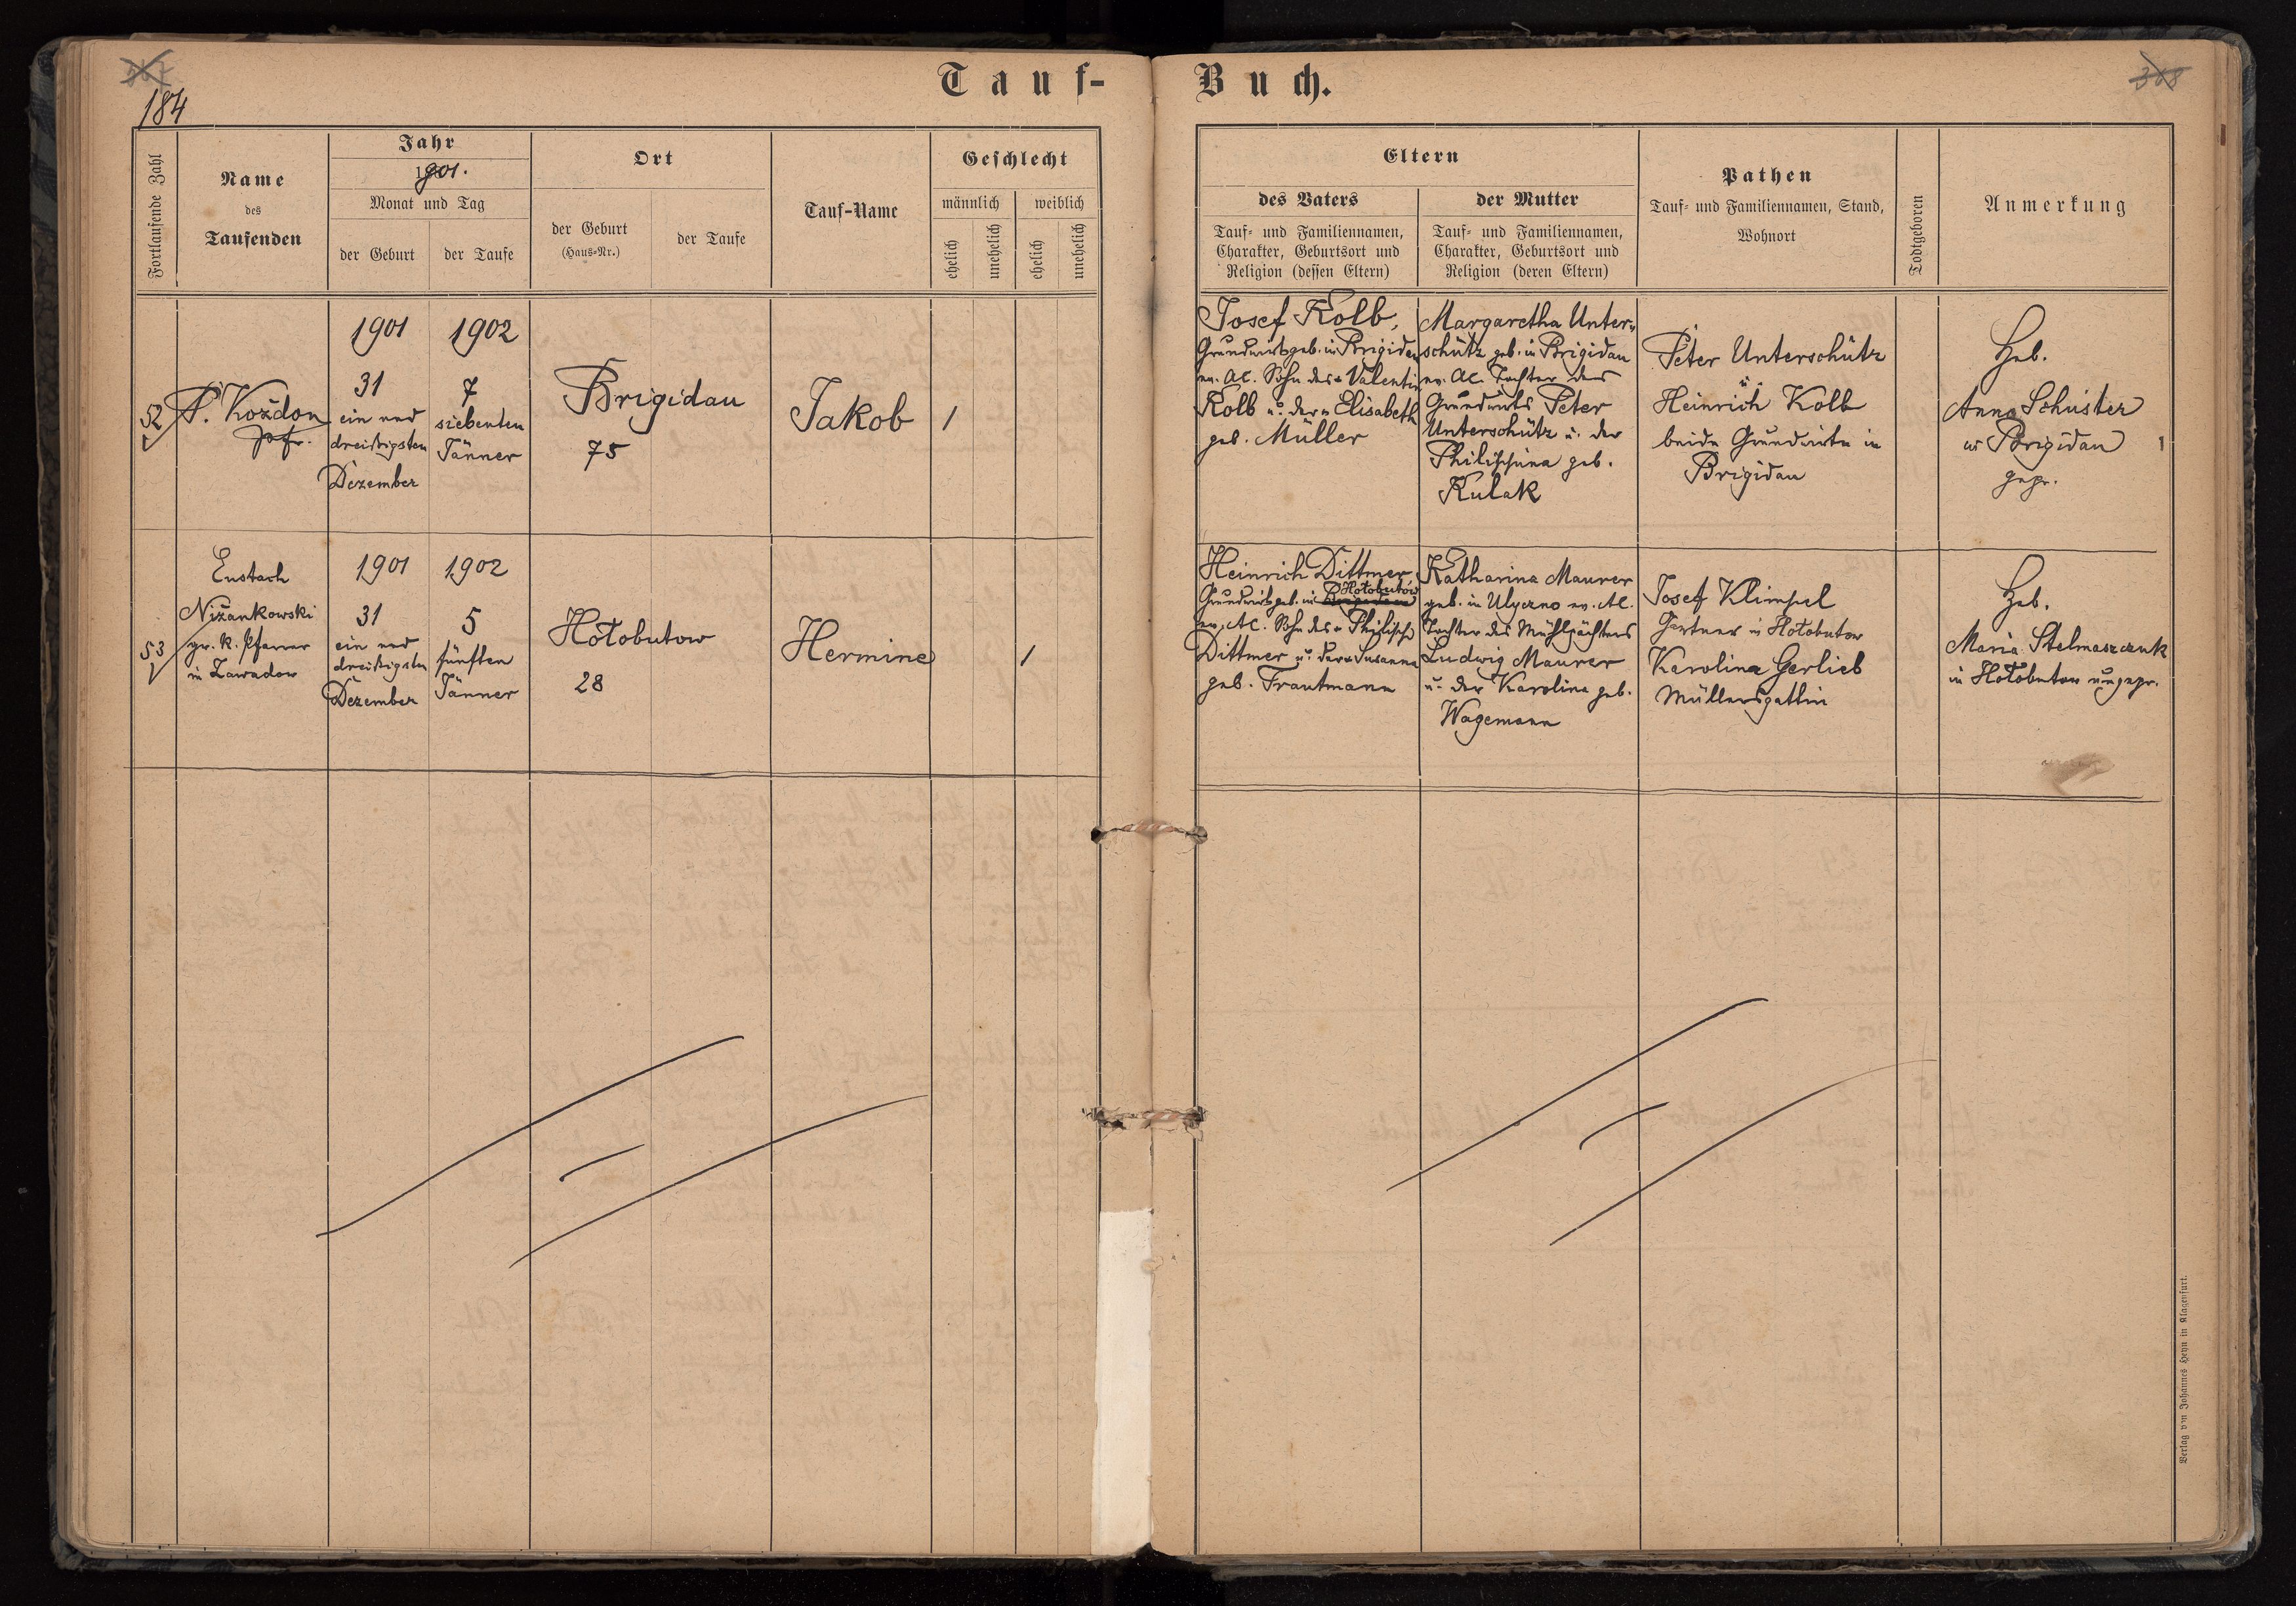 184
368
Tauf-Buch.
Fortlaufende Zahl
Name
des
Taufenden
Jahr
1901.
Monat und Tag
der Geburt
der Taufe
Ort
der Geburt
(Haus-Nr.)
der Taufe
Tauf-Name
Geschlecht
männlich
weiblich
ehelich
unehelich
ehelich
unehelich
Eltern
des Vaters
Tauf- und Familiennamen,
Charakter, Geburtsort und
Religion (dessen Eltern)
der Mutter
Tauf- und Familiennamen,
Charakter, Geburtsort und
Religion (deren Eltern)
Pathen
Tauf- und Familiennamen, Stand,
Wohnort
Todtgeboren
Anmerkung
52
P. Kożdon
Pfr.
1901
31
ein und
dreißigsten
Dezember
1902
7
siebenten
Jänner
Brigidau
75
Jakob
1
Josef Kolb,
Grundwirt geb. in Brigidau
ev. AC. Sohn des Valentin
Kolb u. der Elisabeth
geb. Müller
Margaretha Unter-
schütz geb. in Brigidau
ev. AC. Tochter des
Grundwirts Peter
Unterschütz u. der
Philippina geb.
Kulak
Peter Unterschütz
u.
Heinrich Kolb
beide Grundwirte in
Brigidau
Heb.
Anna Schuster
in Brigidau
gepr.
53
Eustach
Niżankowski
gr. k. Pfarrer
in Zawadow
1901
31
ein und
dreißigsten
Dezember
1902
5
fünften
Jänner
Hołobutow
28
Hermine
1
Heinrich Dittmer,
Hołobutów
Grundwirt geb. in Brigidau
ev. AC. Sohn des Philipp
Dittmer u. der Susanna
geb. Trautmann
Katharina Maurer
geb. in Ulyczno ev. AC.
Tochter des Mühlpächters
Ludwig Maurer
u. der Karolina geb.
Wagemann
Josef Klimpel
Gärtner in Hołobutow
Karolina Gerlieb
Müllersgattin
Heb.
Maria Stelmaszczuk
in Hołobutow ungepr.
Verlag von Johannes Heyn in Klagenfurt.